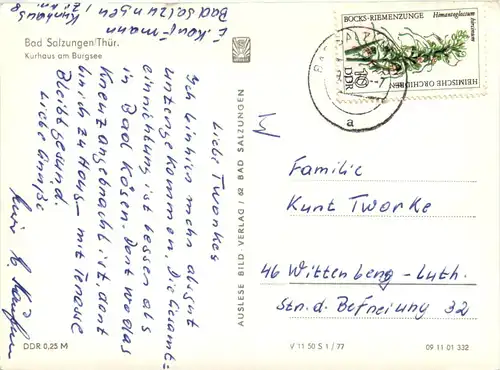 E. Kaufmann
Bad Salzungen
Kurhaus
Bad Salzungen/Thür.
Kurhaus am Burgsee
Liebe Tworkes
Ich bin hier sehr gut
untergekommen. Die Gesamt=
einrichtung ist besser als
in Bad Kösen. Dort wo das
Kreuz angebracht ist, dort
bin ich zu Haus – mit Terasse
Bleibt gesund.
Liebe Grüße
DDR 0,25 M
AUSLESE BILD-VERLAG / 62 BAD SALZUNGEN
BOCKS-RIEMENZUNGE
Himantoglossum hircinum
HEIMISCHE ORCHIDEEN
DDR
10
BAD SALZ
a
Familie
Kurt Tworke
46 Wittenberg-Luth.
Str. d. Befreiung 32
V 11 50 S 1 / 77
09 11 01 332